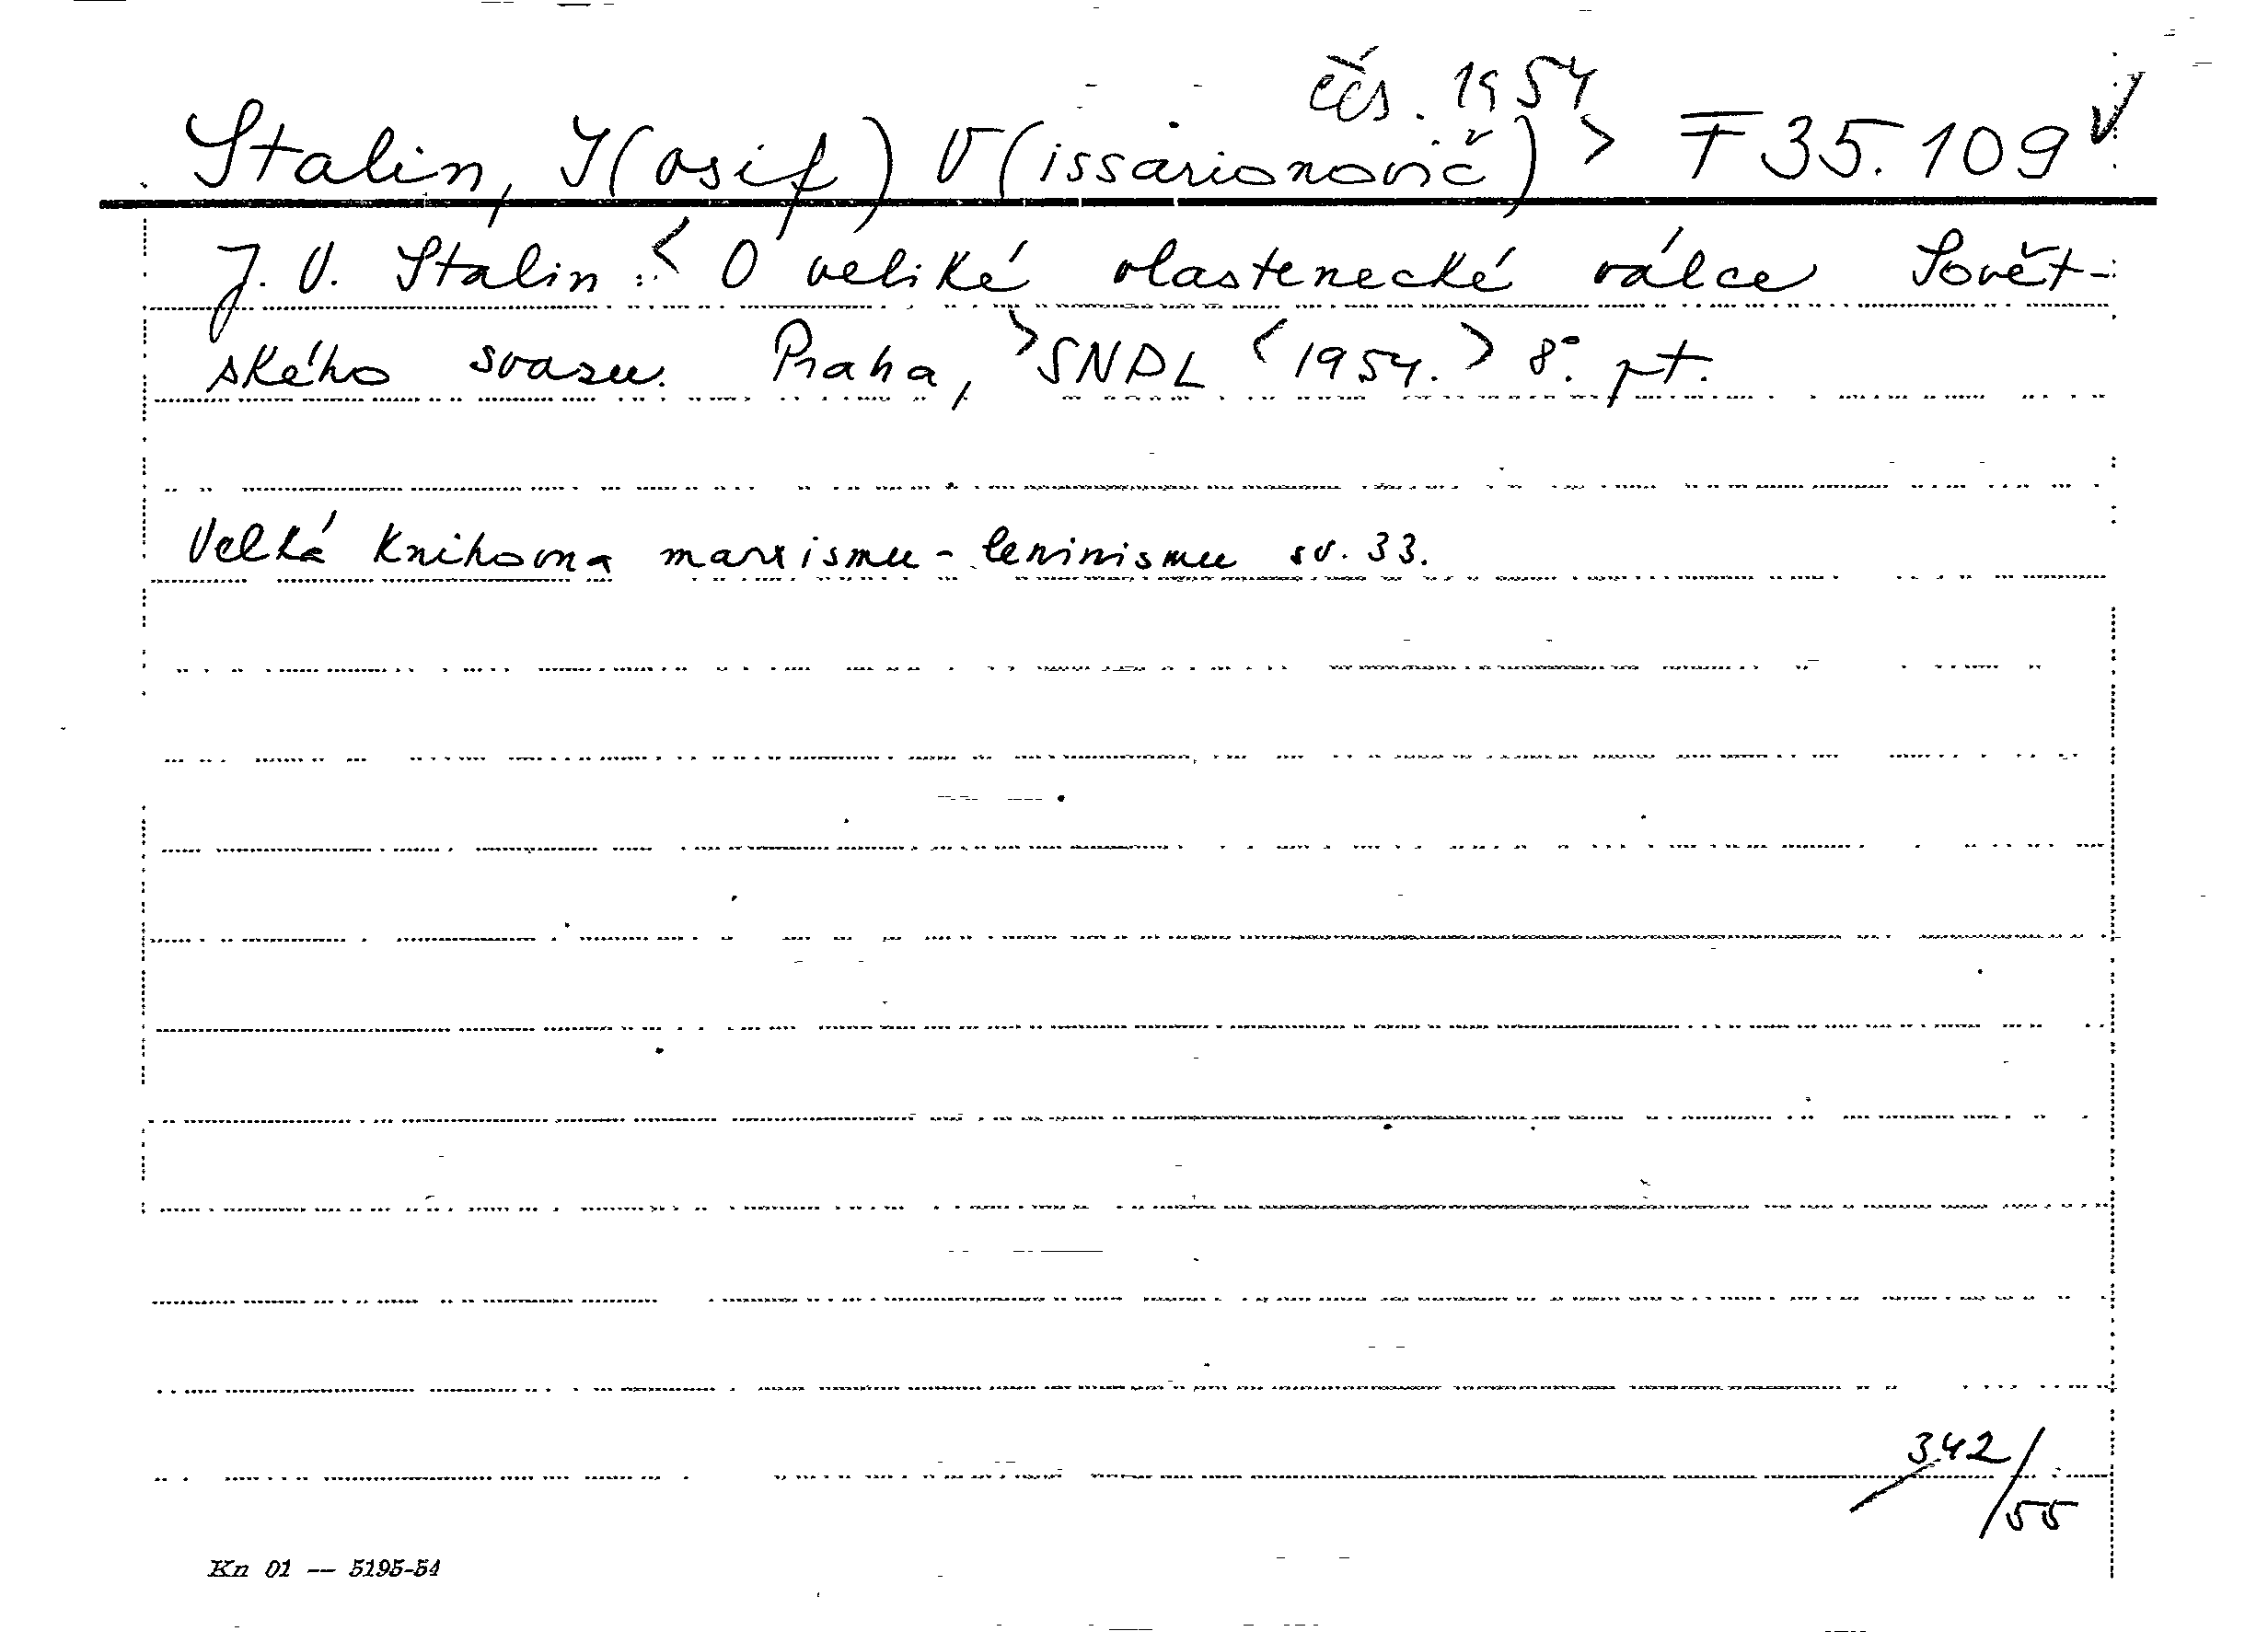 čés. 1954
Stalin, J(osif) V(issarionovič) > F 35.109 √
J. V. Stalin: < O veliké vlastenecké válce Sovět-
ského svazu. Praha, > SNPL < 1954. > 8°. pt.
Velká knihovna marxismu-leninismu sv. 33.
342/55
Kn 01 — 5195-54